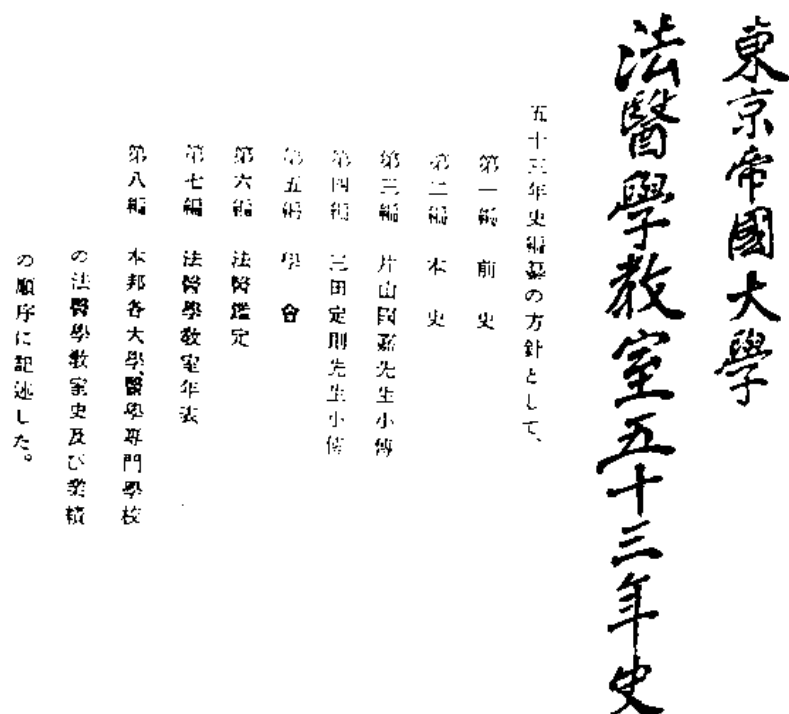 東京帝國大學
法醫學教室五十三年史
五十三年史編纂の方針として、
第一編 前史
第二編 本史
第三編 片山國嘉先生小傳
第四編 三田定則先生小傳
第五編 學會
第六編 法醫鑑定
第七編 法醫學教室年表
第八編 本邦各大學、醫學專門學校
の法醫學教室史及び業績
の順序に記述した。